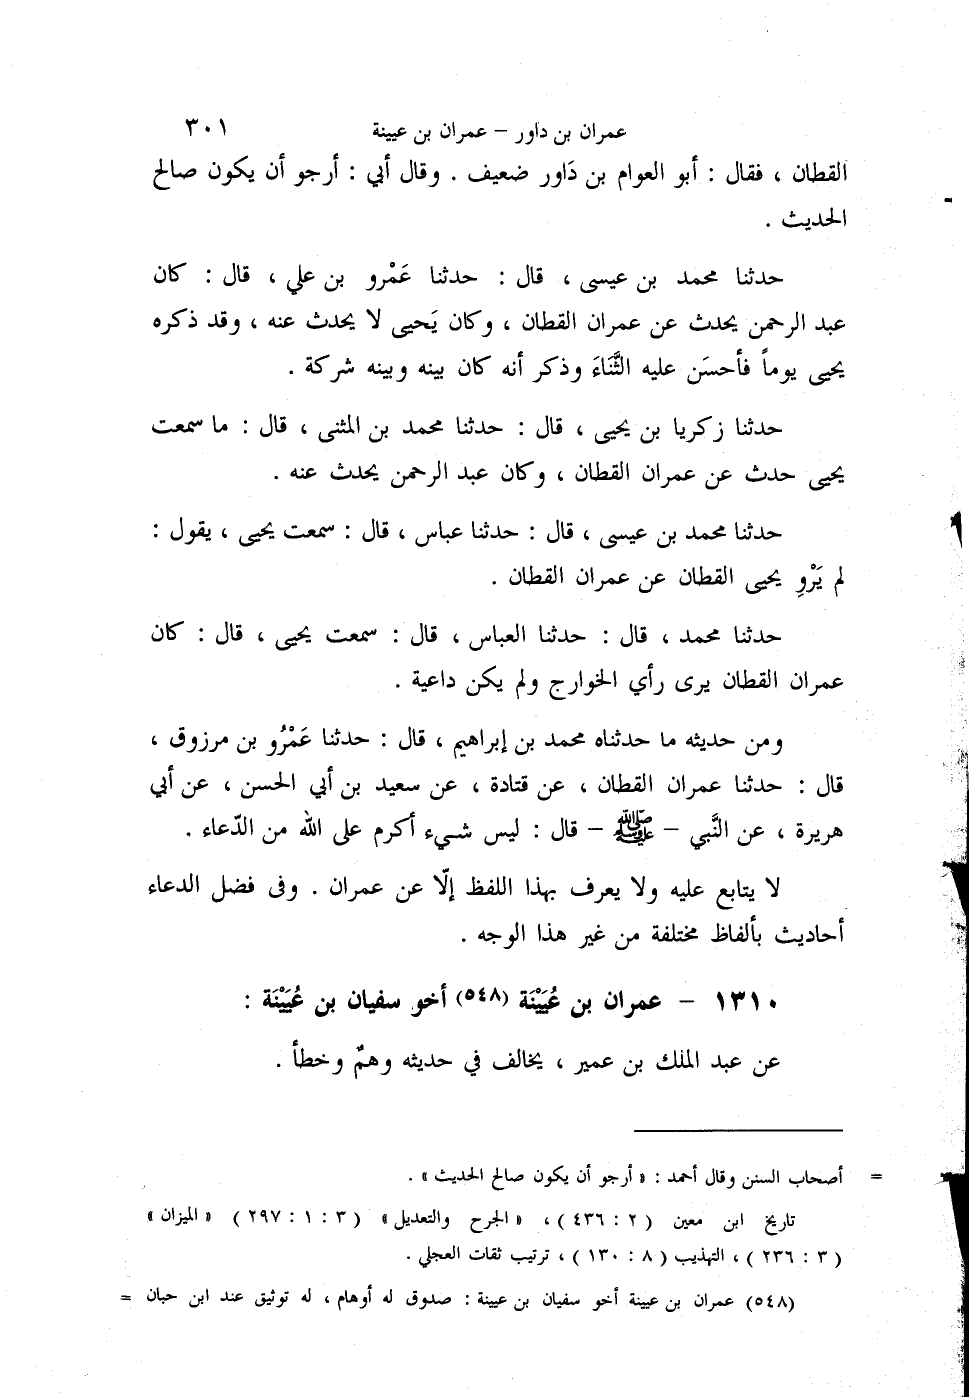 عمران بن داور – عمران بن عيينة ٣٠١
القطان ، فقال : أبو العوام بن دَاور ضعيف . وقال أبي : أرجو أن يكون صالح
الحديث .
حدثنا محمد بن عيسى ، قال : حدثنا عَمْرو بن علي ، قال : كان
عبد الرحمن يحدث عن عمران القطان ، وكان يَحيى لا يحدث عنه ، وقد ذكره
يحيى يوماً فأحسَن عليه الثَّنَاءَ وذكر أنه كان بينه وبينه شركة .
حدثنا زكريا بن يحيى ، قال : حدثنا محمد بن المثنى ، قال : ما سمعت
يحيى حدث عن عمران القطان ، وكان عبد الرحمن يحدث عنه .
حدثنا محمد بن عيسى ، قال : حدثنا عباس ، قال : سمعت يحيى ، يقول :
لم يَرْوِ يحيى القطان عن عمران القطان .
حدثنا محمد ، قال : حدثنا العباس ، قال : سمعت يحيى ، قال : كان
عمران القطان يرى رأي الخوارج ولم يكن داعية .
ومن حديثه ما حدثناه محمد بن إبراهيم ، قال : حدثنا عَمْرُو بن مرزوق ،
قال : حدثنا عمران القطان ، عن قتادة ، عن سعيد بن أبي الحسن ، عن أبي
هريرة ، عن النَّبي – ﷺ – قال : ليس شيء أكرم على الله من الدّعاء .
لا يتابع عليه ولا يعرف بهذا اللفظ إلّا عن عمران . وفى فضل الدعاء
أحاديث بألفاظ مختلفة من غير هذا الوجه .
١٣١٠ – عمران بن عُيَيْنَة (٥٤٨) أخو سفيان بن عُيَيْنَة :
عن عبد الملك بن عمير ، يخالف في حديثه وهمٌ وخطأ .
= أصحاب السنن وقال أحمد : « أرجو أن يكون صالح الحديث » .
تاريخ ابن معين ( ٢ : ٤٣٦ ) ، « الجرح والتعديل » ( ٣ : ١ : ٢٩٧ ) « الميزان »
( ٣ : ٢٣٦ ) ، التهذيب ( ٨ : ١٣٠ ) ، ترتيب ثقات العجلي .
(٥٤٨) عمران بن عيينة أخو سفيان بن عيينة : صدوق له أوهام ، له توثيق عند ابن حبان =